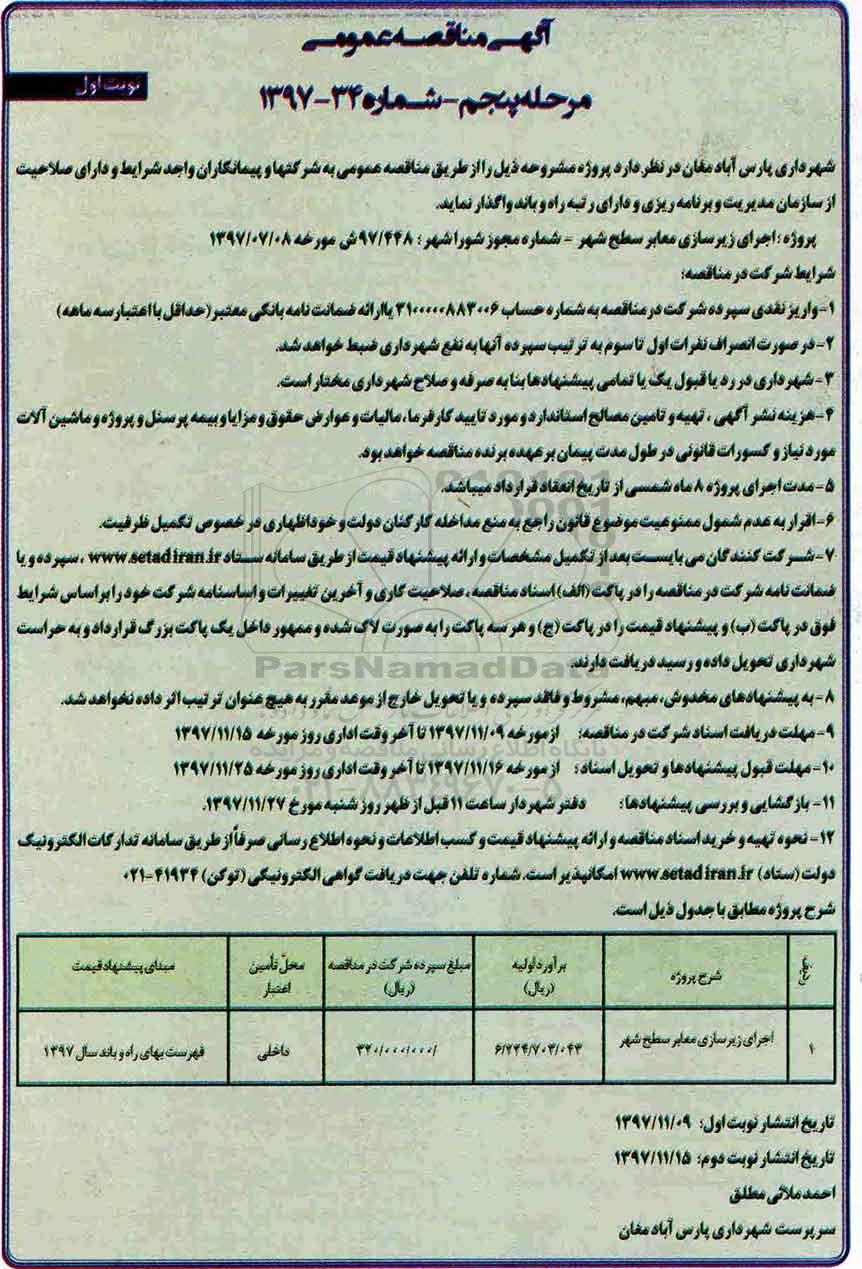 آگهی مناقصه عمومی
نوبت اول
مرحله پنجم-شماره ۳۴-۱۳۹۷
شهرداری پارس آباد مغان در نظر دارد پروژه مشروحه ذیل را از طریق مناقصه عمومی به شرکتها و پیمانکاران واجد شرایط و دارای صلاحیت
از سازمان مدیریت و برنامه ریزی و دارای رتبه راه و باند واگذار نماید.
پروژه : اجرای زیرسازی معابر سطح شهر - شماره مجوز شورا شهر : ۹۷/۴۴۸ش مورخه ۱۳۹۷/۰۷/۰۸
شرایط شرکت در مناقصه:
۱-واریز نقدی سپرده شرکت در مناقصه به شماره حساب ۳۱۰۰۰۰۰۸۸۳۰۰۶ یا ارائه ضمانت نامه بانکی معتبر(حداقل با اعتبار سه ماهه)
۲-در صورت انصراف نفرات اول تا سوم به ترتیب سپرده آنها به نفع شهرداری ضبط خواهد شد.
۳-شهرداری در رد یا قبول یک یا تمامی پیشنهادها بنا به صرفه و صلاح شهرداری مختار است.
۴-هزینه نشر آگهی ، تهیه و تامین مصالح استاندارد و مورد تایید کارفرما، مالیات و عوارض حقوق و مزایا و بیمه پرسنل و پروژه و ماشین آلات
مورد نیاز و کسورات قانونی در طول مدت پیمان بر عهده برنده مناقصه خواهد بود.
۵-مدت اجرای پروژه ۸ ماه شمسی از تاریخ انعقاد قرارداد میباشد.
۶-اقرار به عدم شمول ممنوعیت موضوع قانون راجع به منع مداخله کارکنان دولت و خوداظهاری در خصوص تکمیل ظرفیت.
۷-شرکت کنندگان می بایست بعد از تکمیل مشخصات و ارائه پیشنهاد قیمت از طریق سامانه ستاد www.setadiran.ir ، سپرده و یا
ضمانت نامه شرکت در مناقصه را در پاکت (الف) اسناد مناقصه ، صلاحیت کاری و آخرین تغییرات و اساسنامه شرکت خود را براساس شرایط
فوق در پاکت (ب) و پیشنهاد قیمت را در پاکت (ج) و هر سه پاکت را به صورت لاک شده و ممهور داخل یک پاکت بزرگ قرارداد و به حراست
شهرداری تحویل داده و رسید دریافت دارند.
ParsNamadData
۸-به پیشنهادهای مخدوش، مبهم، مشروط و فاقد سپرده و یا تحویل خارج از موعد مقرر به هیچ عنوان ترتیب اثر داده نخواهد شد.
۹-مهلت دریافت اسناد شرکت در مناقصه: از مورخه ۱۳۹۷/۱۱/۰۹ تا آخر وقت اداری روز مورخه ۱۳۹۷/۱۱/۱۵
پایگاه اطلاع رسانی مناقصه و مزایده
۱۰-مهلت قبول پیشنهادها و تحویل اسناد : از مورخه ۱۳۹۷/۱۱/۱۶ تا آخر وقت اداری روز مورخه ۱۳۹۷/۱۱/۲۵
۱۱- بازگشایی و بررسی پیشنهادها : دفتر شهردار ساعت ۱۱ قبل از ظهر روز شنبه مورخ ۱۳۹۷/۱۱/۲۷.
۱۲- نحوه تهیه و خرید اسناد مناقصه و ارائه پیشنهاد قیمت و کسب اطلاعات و نحوه اطلاع رسانی صرفاً از طریق سامانه تدارکات الکترونیک
دولت (ستاد) www.setadiran.ir امکانپذیر است. شماره تلفن جهت دریافت گواهی الکترونیکی (توکن) ۴۱۹۳۴-۰۲۱
شرح پروژه مطابق با جدول ذیل است.
ردیف | شرح پروژه | برآورد اولیه (ریال) | مبلغ سپرده شرکت در مناقصه (ریال) | محل تأمین اعتبار | مبنای پیشنهاد قیمت
۱ | اجرای زیرسازی معابر سطح شهر | ۶/۲۳۴/۷۰۳/۰۴۳ | ۳۲۰/۰۰۰/۰۰۰/ | داخلی | فهرست بهای راه و باند سال ۱۳۹۷
تاریخ انتشار نوبت اول: ۱۳۹۷/۱۱/۰۹
تاریخ انتشار نوبت دوم: ۱۳۹۷/۱۱/۱۵
احمد ملائی مطلق
سرپرست شهرداری پارس آباد مغان